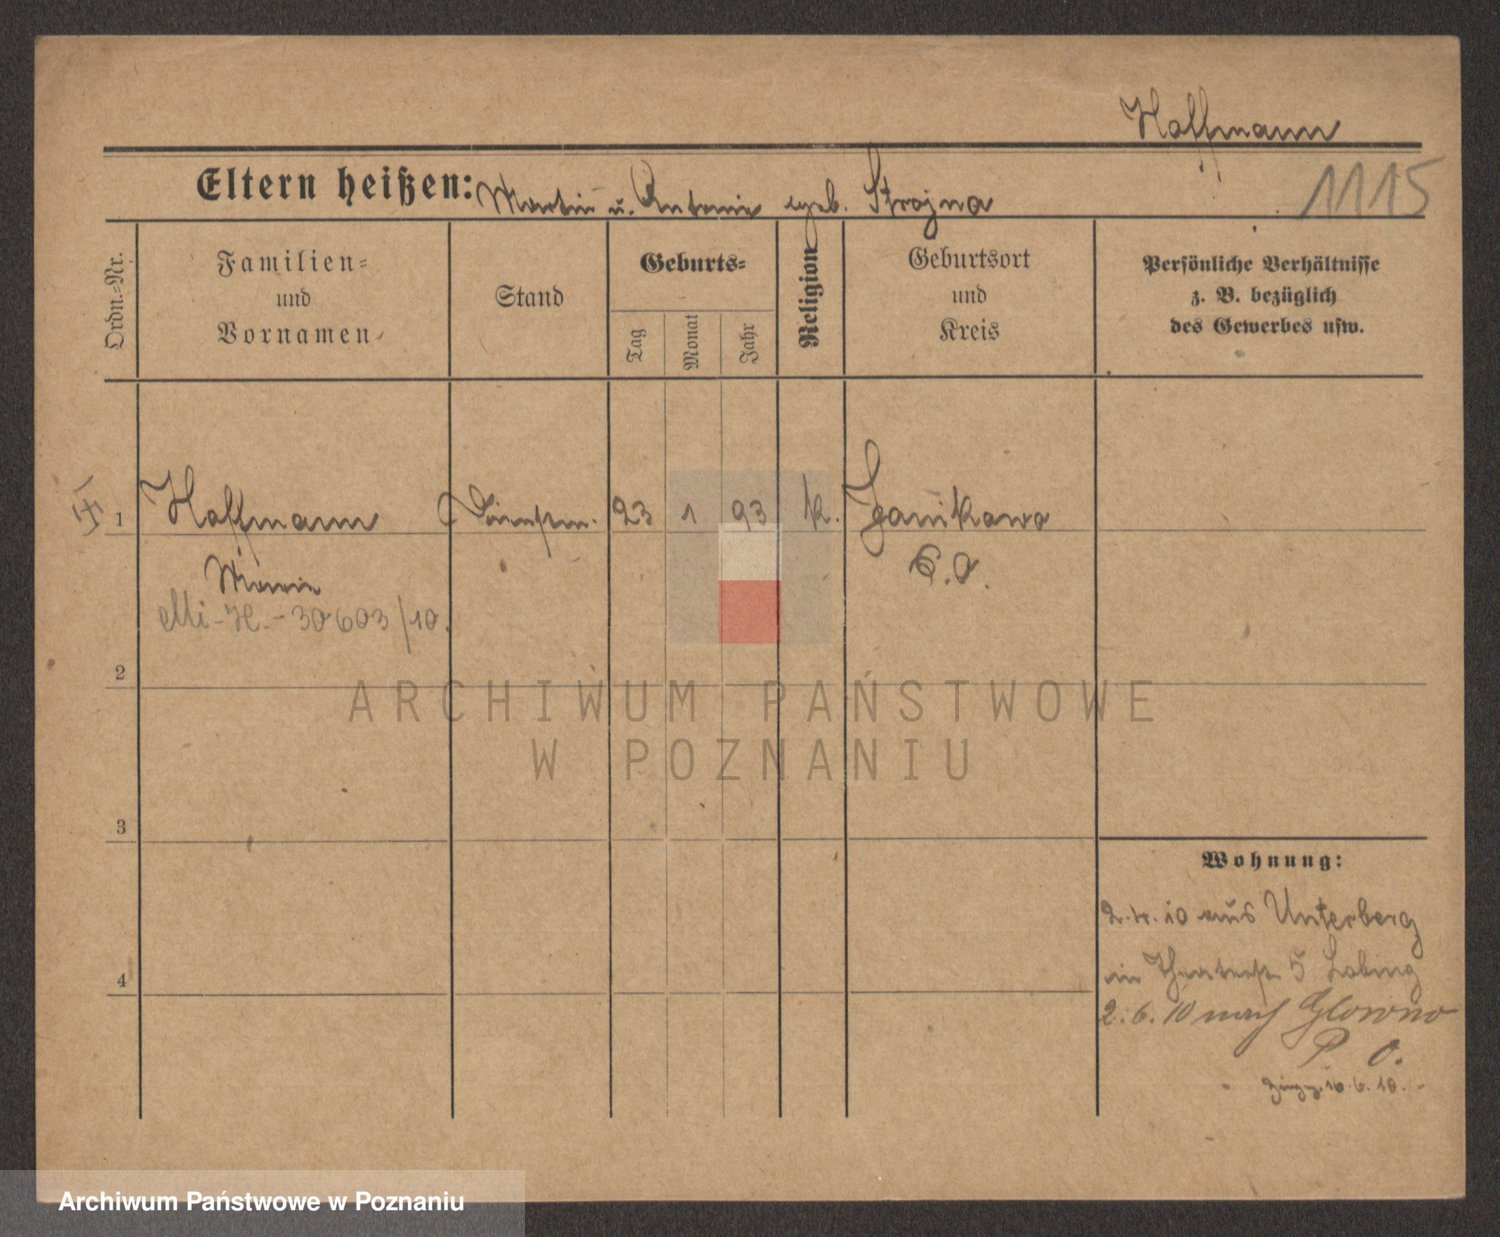 Hoffmann
1115
Eltern heißen: Martin u. Antonie geb. Strojna
Ordn.-Nr.
Familien-
und
Vornamen
Stand
Geburts-
Tag
Monat
Jahr
Religion
Geburtsort
und
Kreis
Persönliche Verhältnisse
z. B. bezüglich
des Gewerbes usw.
1 Hoffmann Dienstm. 23 1 93 k. Janikowo
P. O.
Marie
Mi-H.-30603/10.
2
ARCHIWUM PAŃSTWOWE
W POZNANIU
3
Wohnung:
10 aus Unterberg
in Theaterstr 5
4
2.6.10 nach Glowno
P. O.
16.6.10.
Archiwum Państwowe w Poznaniu